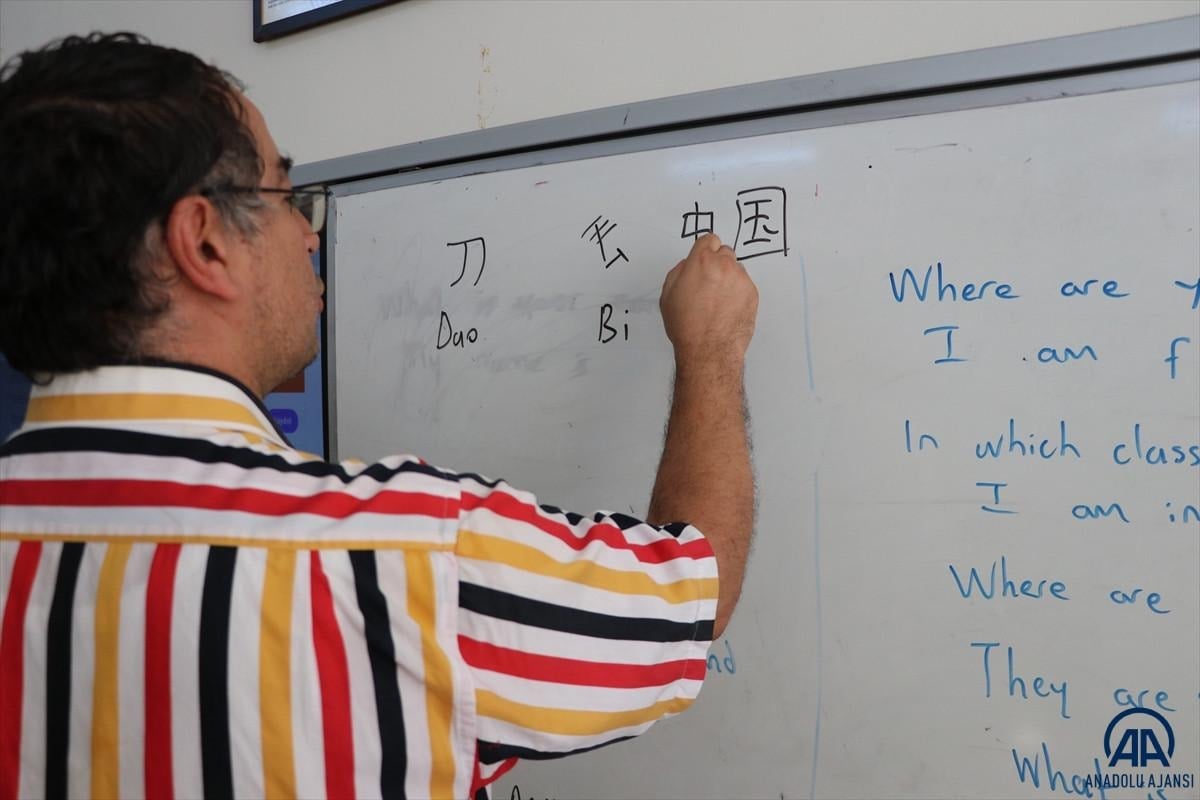 刀 中国
Dao Bi
Where are
I am
In which class
I am in
Where are
They are
What is
AA
ANADOLU AJANSI